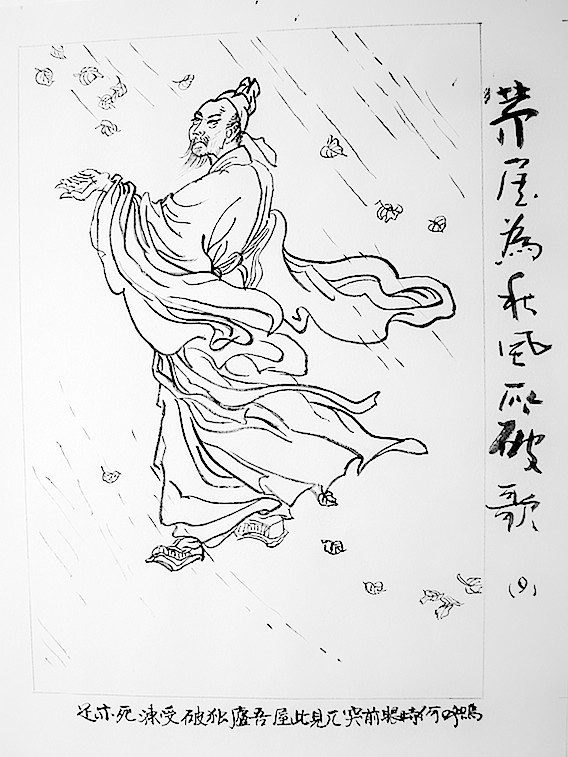 茅屋為秋風所破歌
嗚呼何時眼前突兀見此屋吾廬独破受凍死亦足